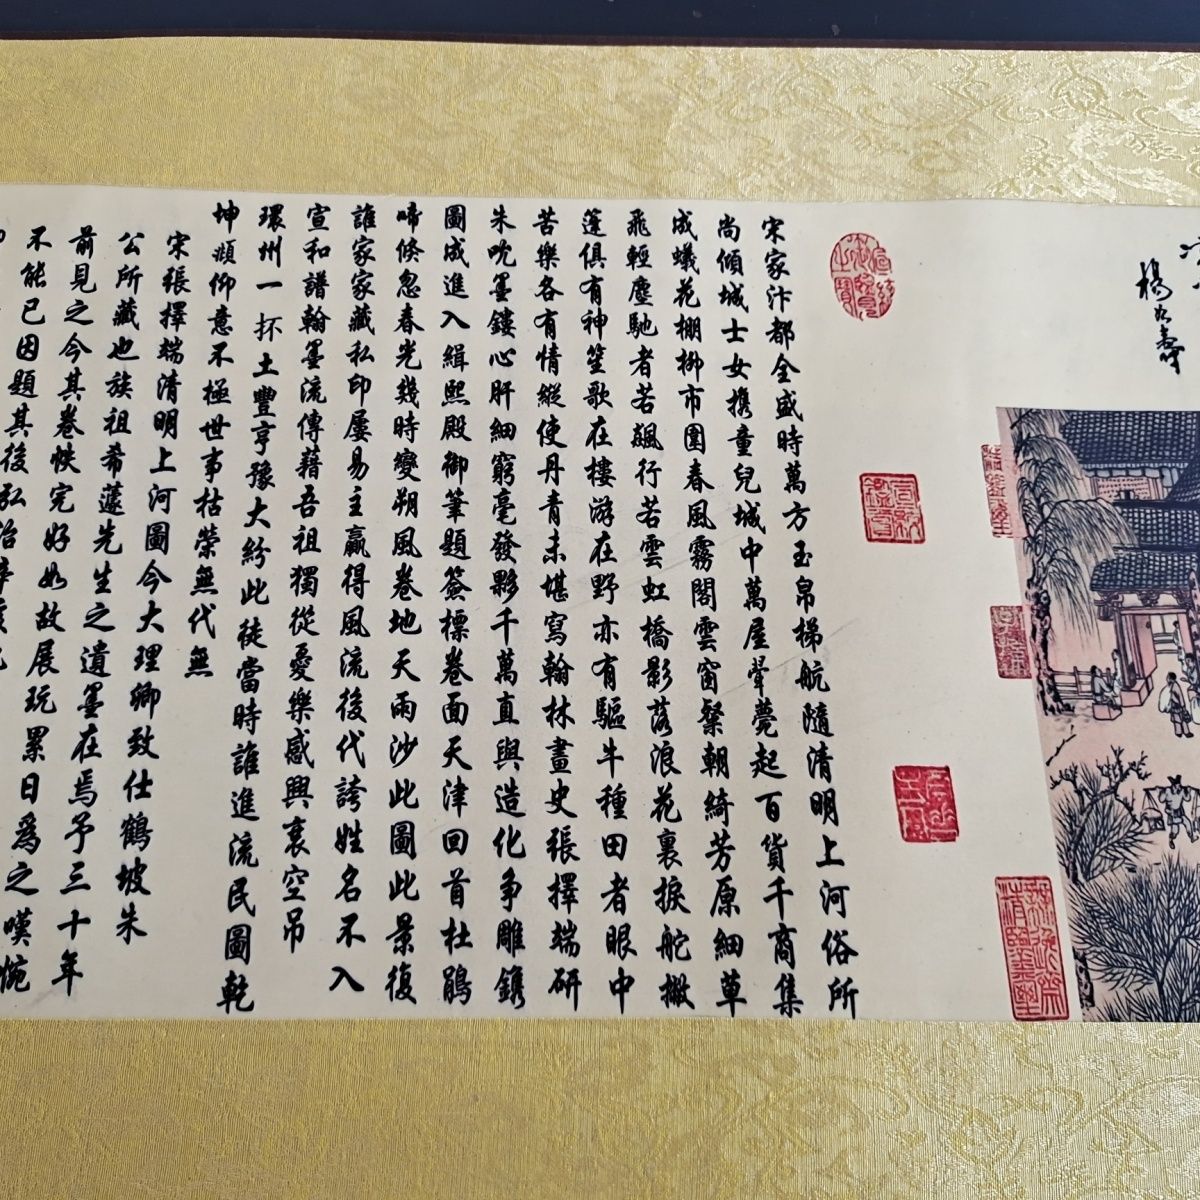 楊
宋家汴都全盛時萬方玉帛梯航隨清明上河俗所
尚傾城士女携童兒城中萬屋翬甍起百貨千商集
成蟻花棚柳市圍春風霧閣雲窗粲朝綺芳原細草
飛輕塵馳者若飆行若雲虹橋影落浪花裏捩舵撇
篷俱有神笙歌在樓游在野亦有驅牛種田者眼中
苦樂各有情縱使丹青未堪寫翰林畫史張擇端研
朱吮墨鏤心肝細窮毫發夥千萬直與造化争雕鐫
圖成進入緝熙殿御筆題簽標卷面天津回首杜鵑
啼倏忽春光幾時變朔風卷地天雨沙此圖此景復
誰家家藏私印屢易主贏得風流後代誇姓名不入
宣和譜翰墨流傳藉吾祖獨從憂樂感興衰空吊
環州一抔土豐亨豫大紛此徒當時誰進流民圖乾
坤頫仰意不極世事枯榮無代無
宋張擇端清明上河圖今大理卿致仕鶴坡朱
公所藏也族祖希蘧先生之遺墨在焉予三十年
前見之今其卷帙完好如故展玩累日爲之嘆惋
不能已因題其後弘治辛